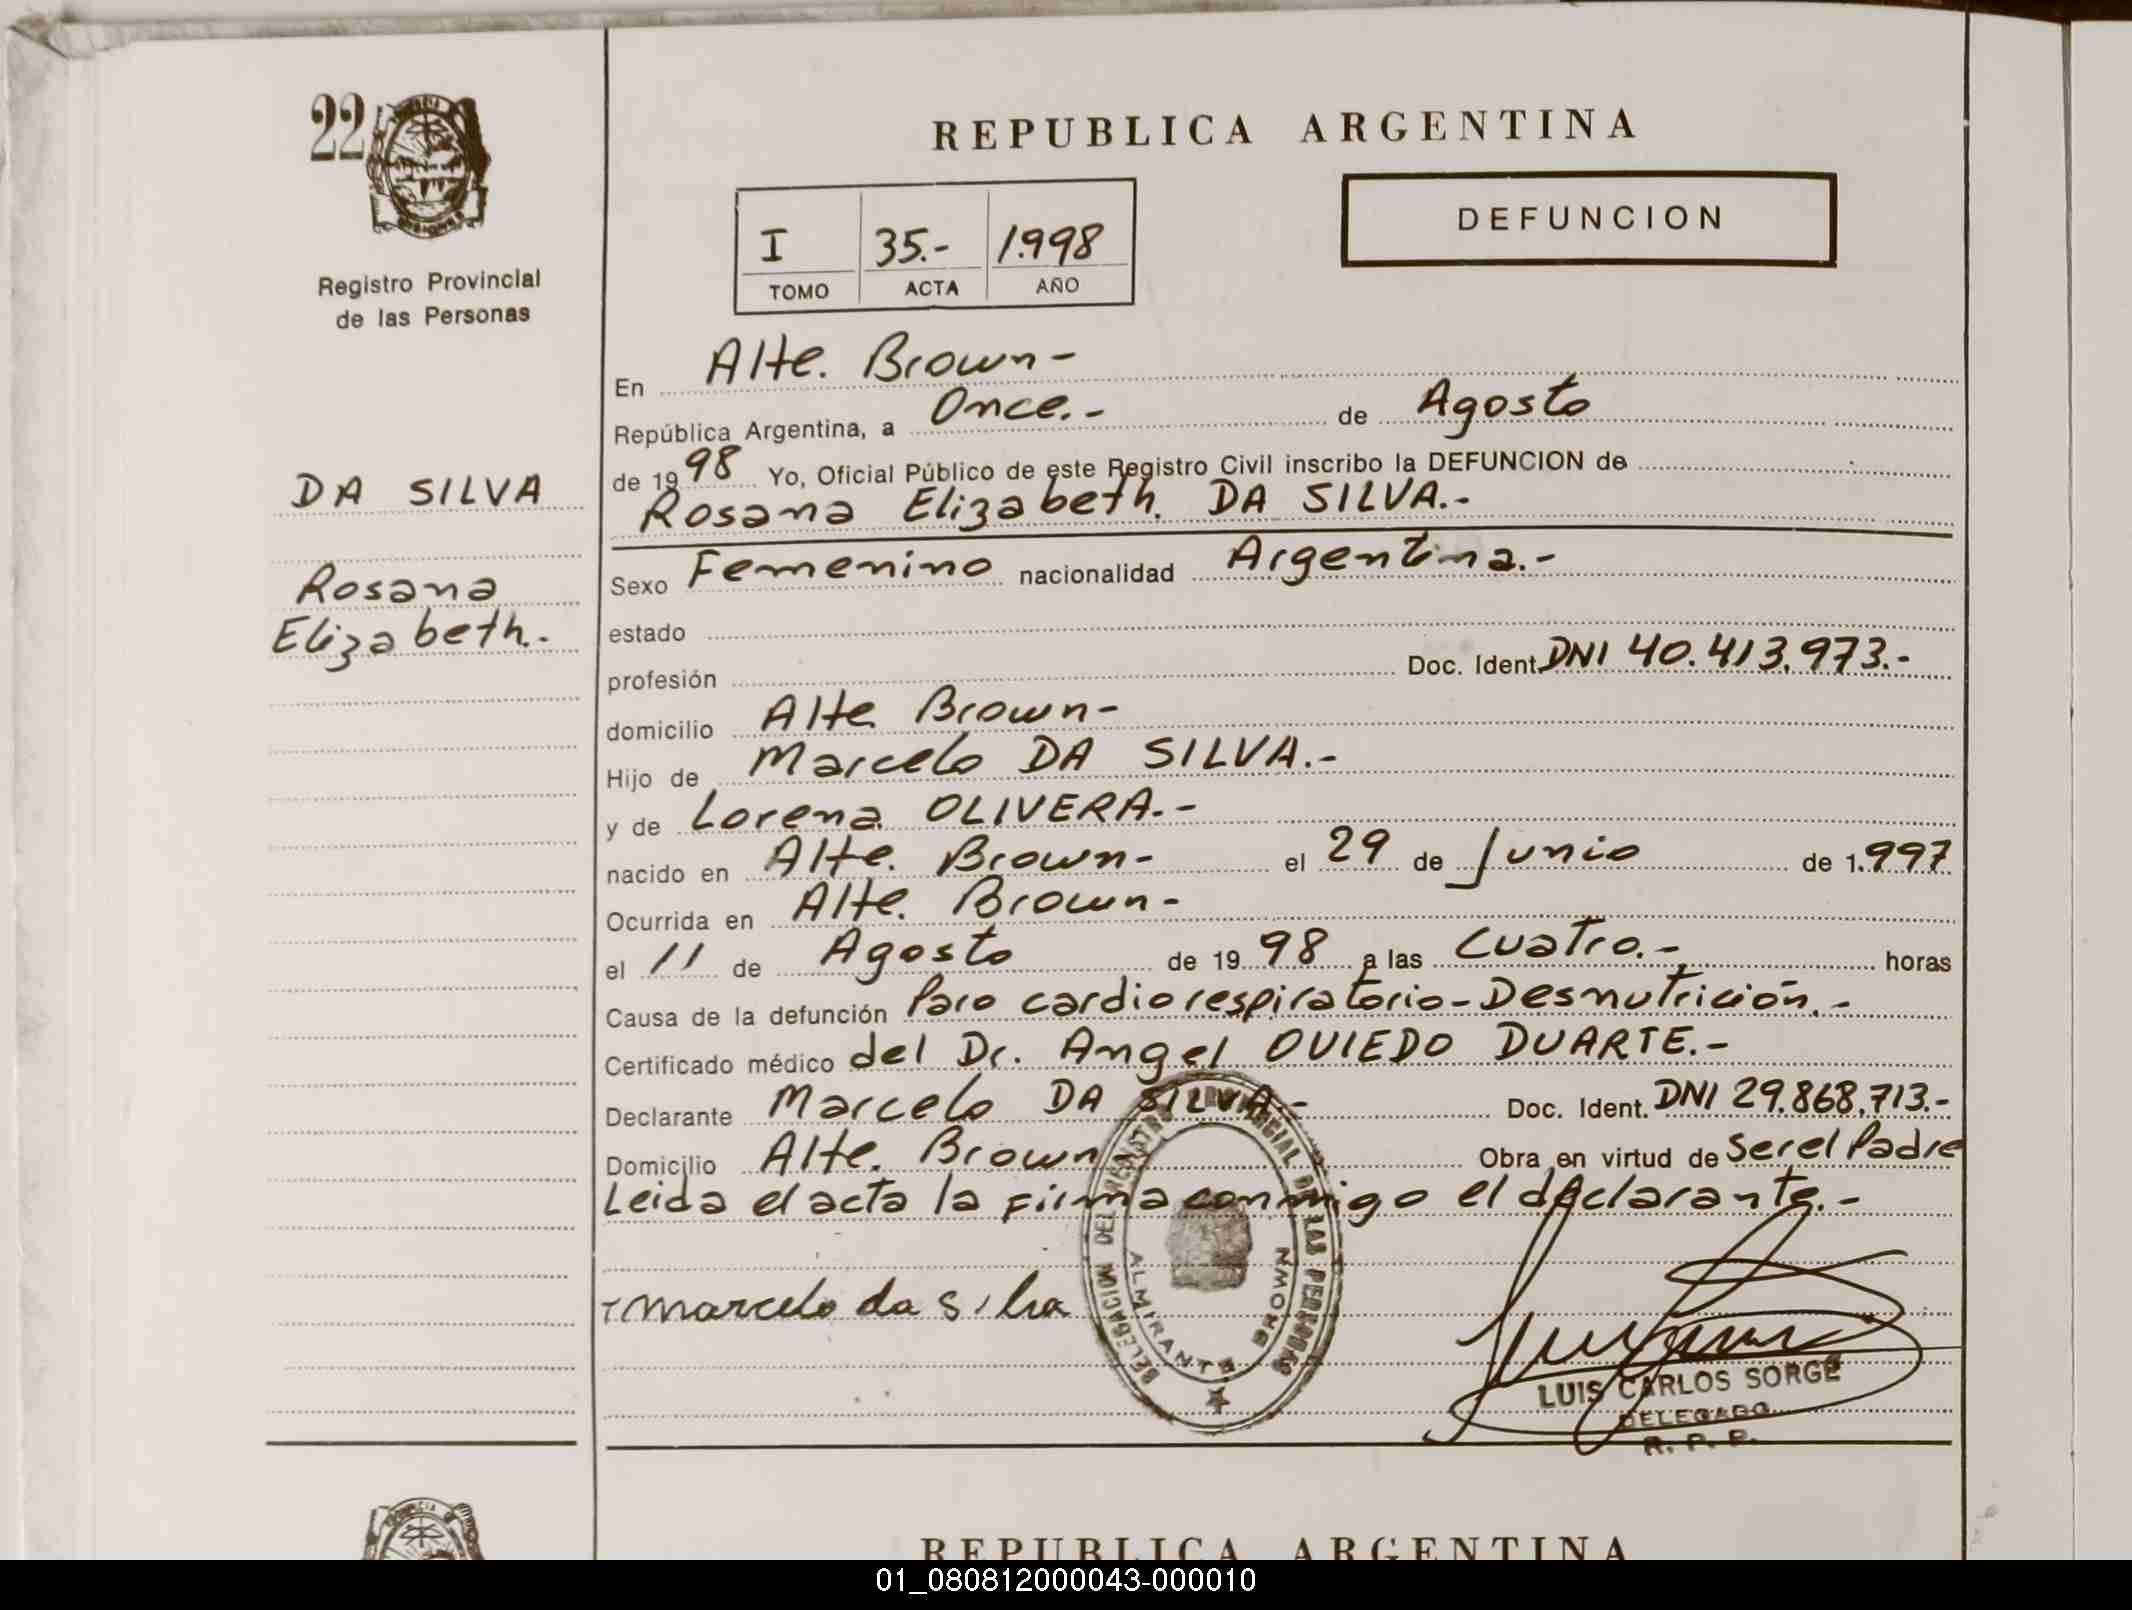 22
REPUBLICA ARGENTINA
DEFUNCION
I 35.- 1.998
TOMO ACTA AÑO
Registro Provincial
de las Personas
En Alte. Brown-
República Argentina, a Once.- de Agosto
de 1998 Yo, Oficial Público de este Registro Civil inscribo la DEFUNCION de
Rosana Elizabeth. DA SILVA.-
DA SILVA
Rosana
Elizabeth.-
Sexo Femenino nacionalidad Argentina.-
estado
profesión Doc. Ident. DNI 40.413.973.-
domicilio Alte Brown-
Hijo de Marcelo DA SILVA.-
y de Lorena OLIVERA.-
nacido en Alte. Brown- el 29 de Junio de 1.997
Ocurrida en Alte. Brown-
el 11 de Agosto de 1998 a las Cuatro.- horas
Causa de la defunción Paro cardiorespiratorio-Desnutrición.-
Certificado médico del Dr. Angel OVIEDO DUARTE.-
Declarante Marcelo DA SILVA.- Doc. Ident. DNI 29.868.713.-
Domicilio Alte. Brown Obra en virtud de Ser el Padre
Leida el acta la firma conmigo el declarante.-
marcelo da silva
DELEGACION DEL REGISTRO PROVINCIAL DE LAS PERSONAS
ALMIRANTE BROWN
LUIS CARLOS SORGE
DELEGADO
R. P. P.
REPUBLICA ARGENTINA
01_080812000043-000010